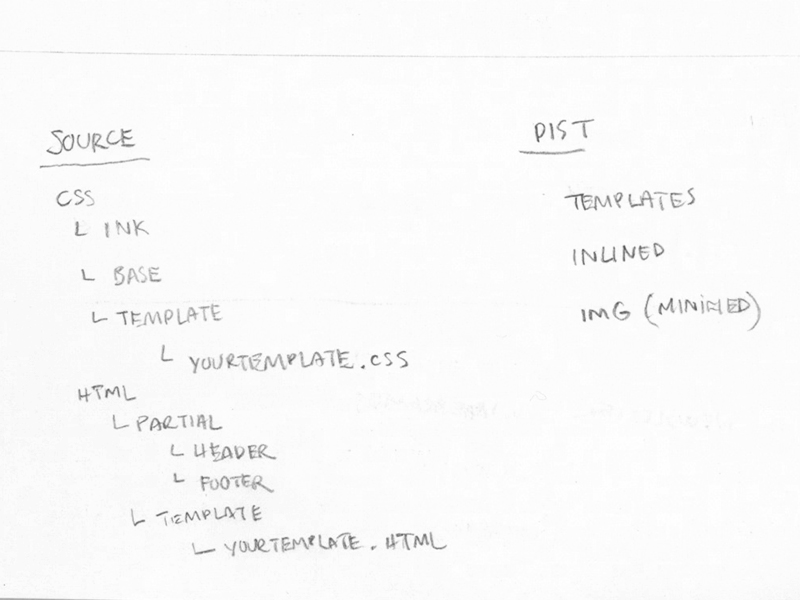 SOURCE
CSS
└ INK
└ BASE
└ TEMPLATE
└ YOURTEMPLATE.CSS
HTML
└ PARTIAL
└ HEADER
└ FOOTER
└ TEMPLATE
└ YOURTEMPLATE.HTML
DIST
TEMPLATES
INLINED
IMG (MINIFIED)